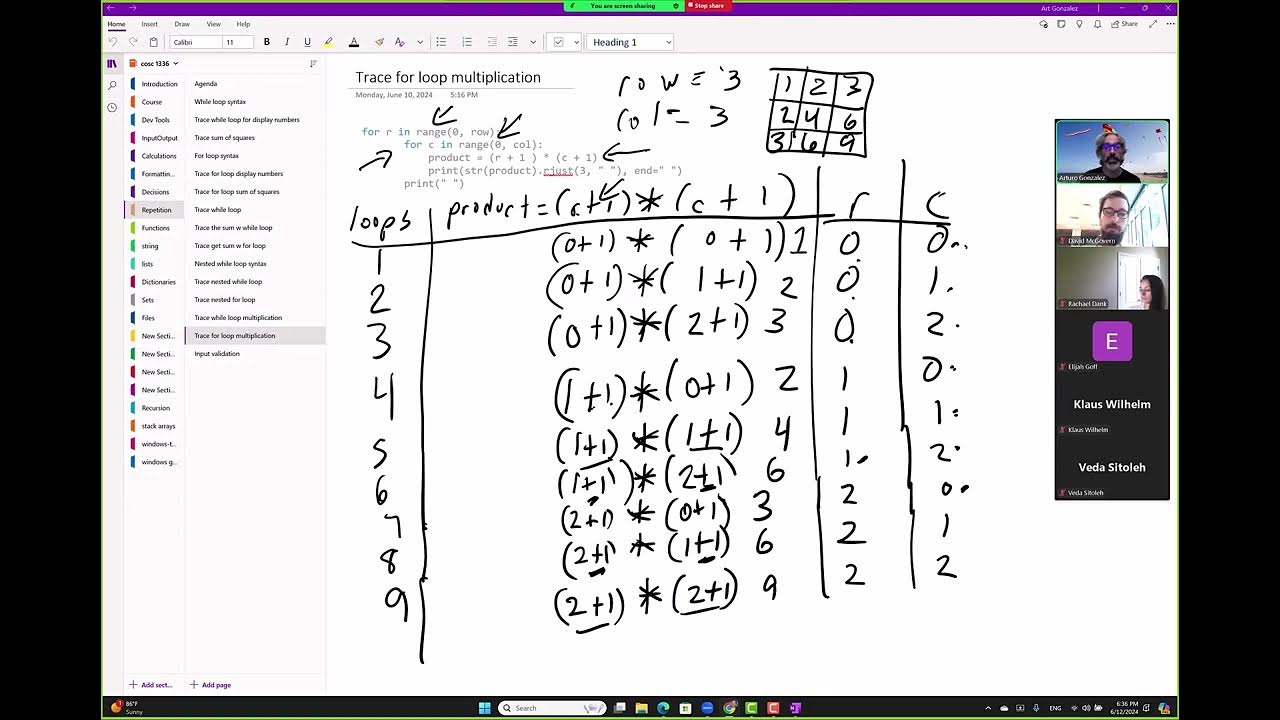 Art Gonzalez
You are screen sharing
Stop share
Home Insert Draw View Help
Share
Calibri 11 B I U Heading 1
cosc 1336
Introduction
Course
Dev Tools
InputOutput
Calculations
Formattin...
Decisions
Repetition
Functions
string
lists
Dictionaries
Sets
Files
New Secti...
New Secti...
New Secti...
New Secti...
Recursion
stack arrays
windows-t...
windows g...
Add sect...
Agenda
While loop syntax
Trace while loop for display numbers
Trace sum of squares
For loop syntax
Trace for loop display numbers
Trace for loop sum of squares
Trace while loop
Trace the sum w while loop
Trace get sum w for loop
Nested while loop syntax
Trace nested while loop
Trace nested for loop
Trace while loop multiplication
Trace for loop multiplication
Input validation
Add page
Trace for loop multiplication
Monday, June 10, 2024 5:16 PM
for r in range(0, row):
for c in range(0, col):
product = (r + 1 ) * (c + 1)
print(str(product).rjust(3, " "), end=" ")
print(" ")
row = 3
col = 3
1 2 3
2 4 6
3 6 9
loops product = (r+1) * (c + 1) r c
1 (0+1) * (0+1) 1 0 0
2 (0+1) * (1+1) 2 0 1
3 (0+1) * (2+1) 3 0 2
4 (1+1) * (0+1) 2 1 0
5 (1+1) * (1+1) 4 1 1
6 (1+1) * (2+1) 6 1 2
7 (2+1) * (0+1) 3 2 0
8 (2+1) * (1+1) 6 2 1
9 (2+1) * (2+1) 9 2 2
Arturo Gonzalez
David McGovern
Rachael Dank
E
Elijah Goff
Klaus Wilhelm
Klaus Wilhelm
Veda Sitoleh
Veda Sitoleh
86°F
Sunny
Search
ENG
6:36 PM
6/12/2024